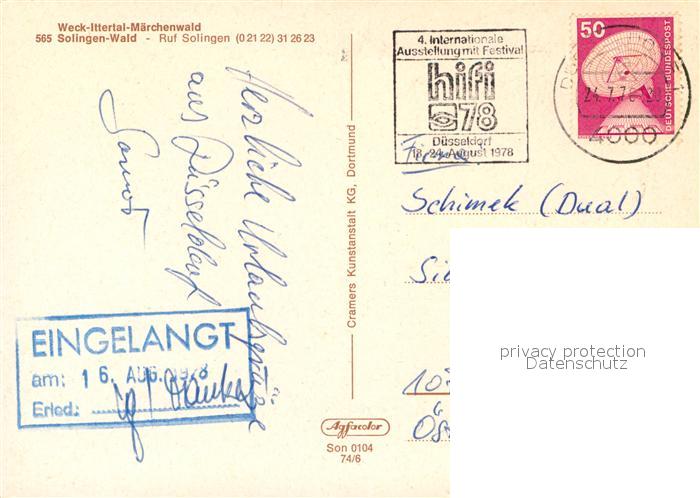 Weck-Ittertal-Märchenwald
565 Solingen-Wald - Ruf Solingen (0 21 22) 31 26 23
4. Internationale
Ausstellung mit Festival
hifi
78
Düsseldorf
18.-24. August 1978
50
DEUTSCHE BUNDESPOST
4000
Herzliche Urlaubsgrüße
aus Düsseldorf
Firma
Schimek (Dual)
Cramers Kunstanstalt KG, Dortmund
EINGELANGT
am: 16. AUG. 1978
Erled.:
Agfacolor
Son 0104
74/6
privacy protection
Datenschutz